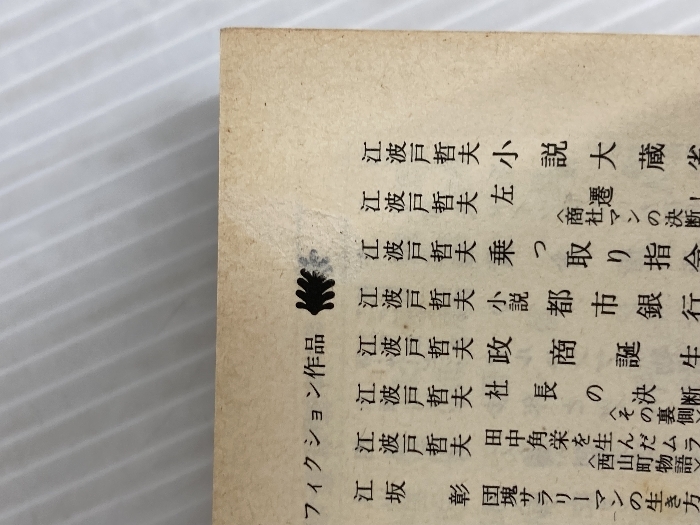 フィクション作品
江波戸哲夫 小説大蔵省
江波戸哲夫 左遷
〈商社マンの決断!
江波戸哲夫 乗っ取り指令
江波戸哲夫 小説都市銀行
江波戸哲夫 政商誕生
江波戸哲夫 社長の決断
〈その裏側〉
江波戸哲夫 田中角栄を生んだムラ
〈西山町物語〉
江坂彰 団塊サラリーマンの生き方